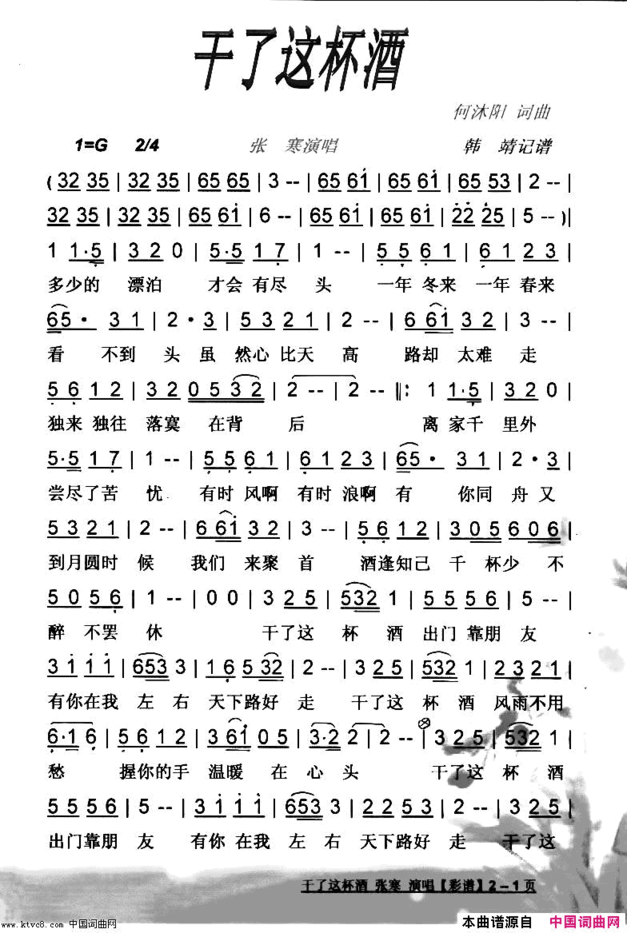 干了这杯酒
何沐阳 词曲
1=G 2/4 张 寒演唱 韩 靖记谱
( 32 35 | 32 35 | 65 65 | 3 -- | 65 61 | 65 61 | 65 53 | 2 -- |
32 35 | 32 35 | 65 61 | 6 -- | 65 61 | 65 61 | 22 25 | 5 -- )|
1 1·5 | 3 2 0 | 5·5 1 7 | 1 -- | 5 5 6 1 | 6 1 2 3 |
多少的 漂泊 才会 有尽 头 一年 冬来 一年 春来
65· 3 1 | 2·3 | 5 3 2 1 | 2 -- | 6 61 3 2 | 3 -- |
看 不到 头 虽 然心 比天 高 路却 太难 走
5 6 1 2 | 3 2 0 5 3 2 | 2 -- | 2 -- ‖: 1 1·5 | 3 2 0 |
独来 独往 落寞 在背 后 离 家千 里外
5·5 1 7 | 1 -- | 5 5 6 1 | 6 1 2 3 | 65· 3 1 | 2·3 |
尝尽了苦 忧 有时 风啊 有时 浪啊 有 你同 舟 又
5 3 2 1 | 2 -- | 6 61 3 2 | 3 -- | 5 6 1 2 | 3 0 5 6 0 6 |
到月圆时 候 我们 来聚 首 酒逢知己 千 杯少 不
5 0 5 6 | 1 -- | 0 0 | 3 2 5 | 532 1 | 5 5 5 6 | 5 -- |
醉 不罢 休 干了这 杯 酒 出门 靠朋 友
3 1 1 1 | 653 3 | 1 6 5 532 | 2 -- | 3 2 5 | 532 1 |
有你在我 左 右 天下路好 走 干了这 杯 酒 风雨不用
6·1 6 | 5 6 1 2 | 3 61 0 5 | 3·2 2 | 2 -- | 3 2 5 | 532 1 |
愁 握你的手 温暖 在 心 头 干了这 杯 酒
5 5 5 6 | 5 -- | 3 1 1 1 | 653 3 | 2 5 5 3 | 2 -- | 3 2 5 |
出门靠朋 友 有你 在我 左 右 天下路好 走 干了这
干了这杯酒 张寒 演唱【彩谱】2－1页
www.ktvc8.com 中国词曲网
本曲谱源自 中国词曲网